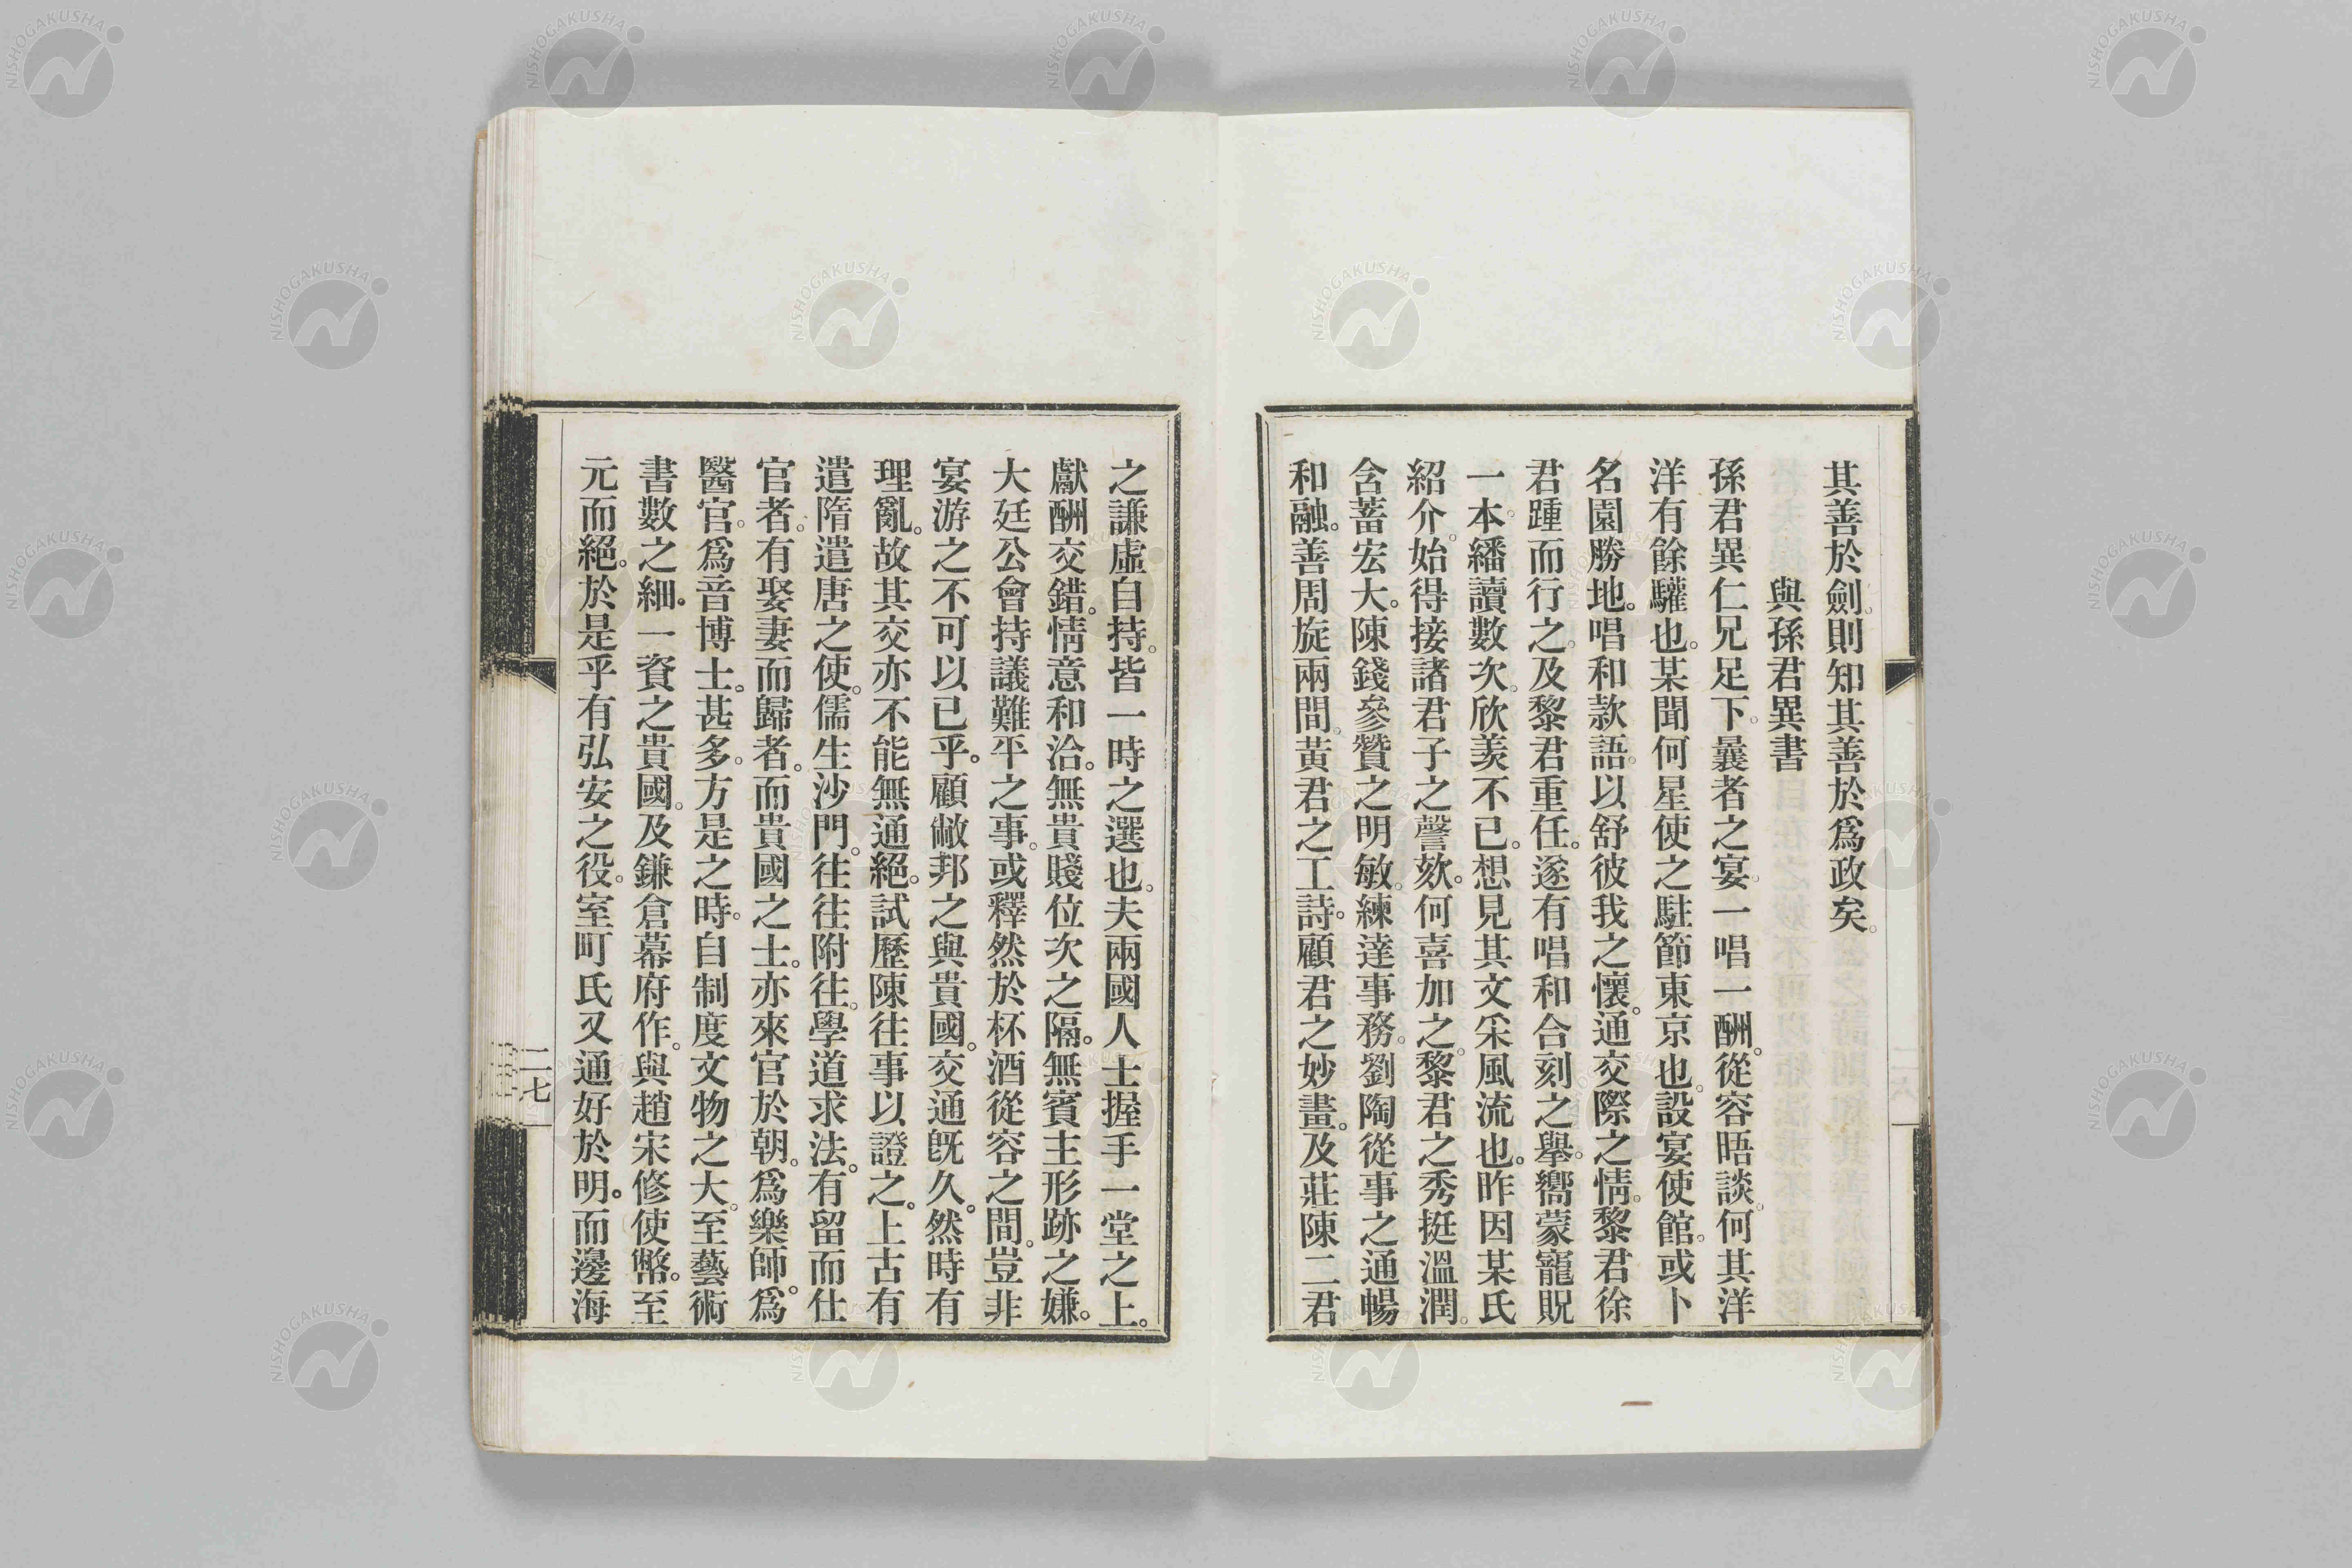 其善於劍。則知其善於爲政矣。
與孫君異書
孫君異仁兄足下。曩者之宴。一唱一酬。從容晤談。何其洋
洋有餘驩也。某聞何星使之駐節東京也。設宴使館。或卜
名園勝地。唱和款語。以舒彼我之懷。通交際之情。黎君徐
君踵而行之。及黎君重任。遂有唱和合刻之舉。嚮蒙寵貺
一本。繙讀數次。欣羨不已。想見其文采風流也。昨因某氏
紹介。始得接諸君子之謦欬。何喜加之。黎君之秀挺溫潤。
含蓄宏大。陳錢參贊之明敏。練達事務。劉陶從事之通暢
和融。善周旋兩間。黃君之工詩。顧君之妙畫。及莊陳二君
之謙虛自持。皆一時之選也。夫兩國人士握手一堂之上。
獻酬交錯。情意和洽。無貴賤位次之隔。無賓主形跡之嫌。
大廷公會持議難平之事。或釋然於杯酒從容之間。豈非
宴游之不可以已乎。顧敝邦之與貴國。交通旣久。然時有
理亂。故其交亦不能無通絕。試歷陳往事以證之。上古有
遣隋遣唐之使。儒生沙門。往往附往。學道求法。有留而仕
官者。有娶妻而歸者。而貴國之士。亦來官於朝。爲樂師。爲
醫官。爲音博士。甚多。方是之時。自制度文物之大。至藝術
書數之細。一資之貴國。及鎌倉幕府作。與趙宋修使幣。至
元而絕。於是乎有弘安之役。室町氏又通好於明。而邊海
二七
NISHOGAKUSHA